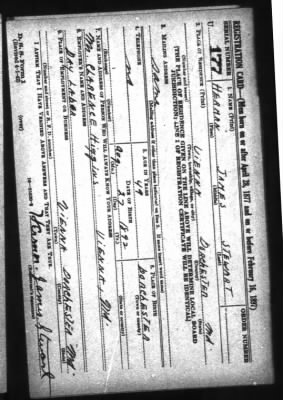 REGISTRATION CARD—(Men born on or after April 28, 1877 and on or before February 16, 1897)
SERIAL NUMBER 1. NAME (Print) ORDER NUMBER
U 177 HERMAN JAMES STEWART
(First) (Middle) (Last)
2. PLACE OF RESIDENCE (Print)
VIENNA DORCHESTER MD.
[THE PLACE OF RESIDENCE GIVEN ON THE LINE ABOVE WILL DETERMINE LOCAL BOARD
JURISDICTION; LINE 2 OF REGISTRATION CERTIFICATE WILL BE IDENTICAL]
3. MAILING ADDRESS
SAME
(Mailing address if other than place indicated on line 2. If same insert word same)
4. TELEPHONE 5. AGE IN YEARS 6. PLACE OF BIRTH
NO 49 DORCHESTER
DATE OF BIRTH
27 1892 MD.
(Mo.) (Day) (Yr.)
7. NAME AND ADDRESS OF PERSON WHO WILL ALWAYS KNOW YOUR ADDRESS
M. CLARENCE HIGGINS VIENNA, MD.
8. EMPLOYER'S NAME AND ADDRESS
DAY LABOR
9. PLACE OF EMPLOYMENT OR BUSINESS
VIENNA DORCHESTER MD.
(Number and street or R. F. D. number) (Town) (County) (State)
I AFFIRM THAT I HAVE VERIFIED ABOVE ANSWERS AND THAT THEY ARE TRUE.
D. S. S. Form 1
(over)
Herman James Stewart